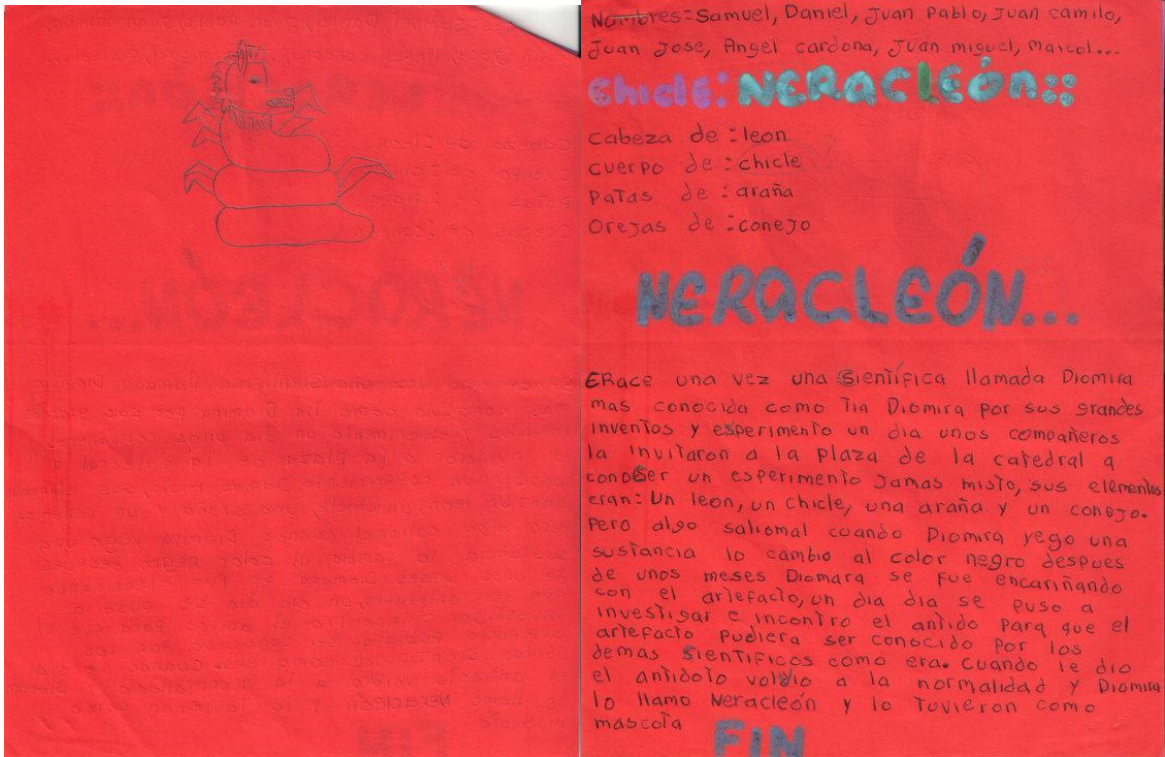 Nombres: Samuel, Daniel, Juan Pablo, Juan camilo,
Juan Jose, Angel cardona, Juan miguel, Marcol...
Chicle: NERACLEÓN::
cabeza de : leon
cuerpo de : chicle
Patas de : araña
Orejas de : conejo
NERACLEÓN...
ERace una vez una Sientífica llamada Diomira
mas conocida como Tia Diomira por sus grandes
inventos y esperimento un dia unos compañeros
la invitaron a la plaza de la catedral a
conoser un esperimento Jamas misto, sus elementos
eran: Un leon, un chicle, una araña y un conejo.
Pero algo saliomal cuando Diomira yego una
sustancia lo cambio al color negro despues
de unos meses Diomara se fue encariñando
con el artefacto, un dia dia se puso a
investigar e incontro el antido para que el
artefacto pudiera ser conocido por los
demas Sientificos como era. Cuando le dio
el antidoto volvio a la normalidad y Diomira
lo llamo Neracleón y lo Tovieron como
mascota
FIN